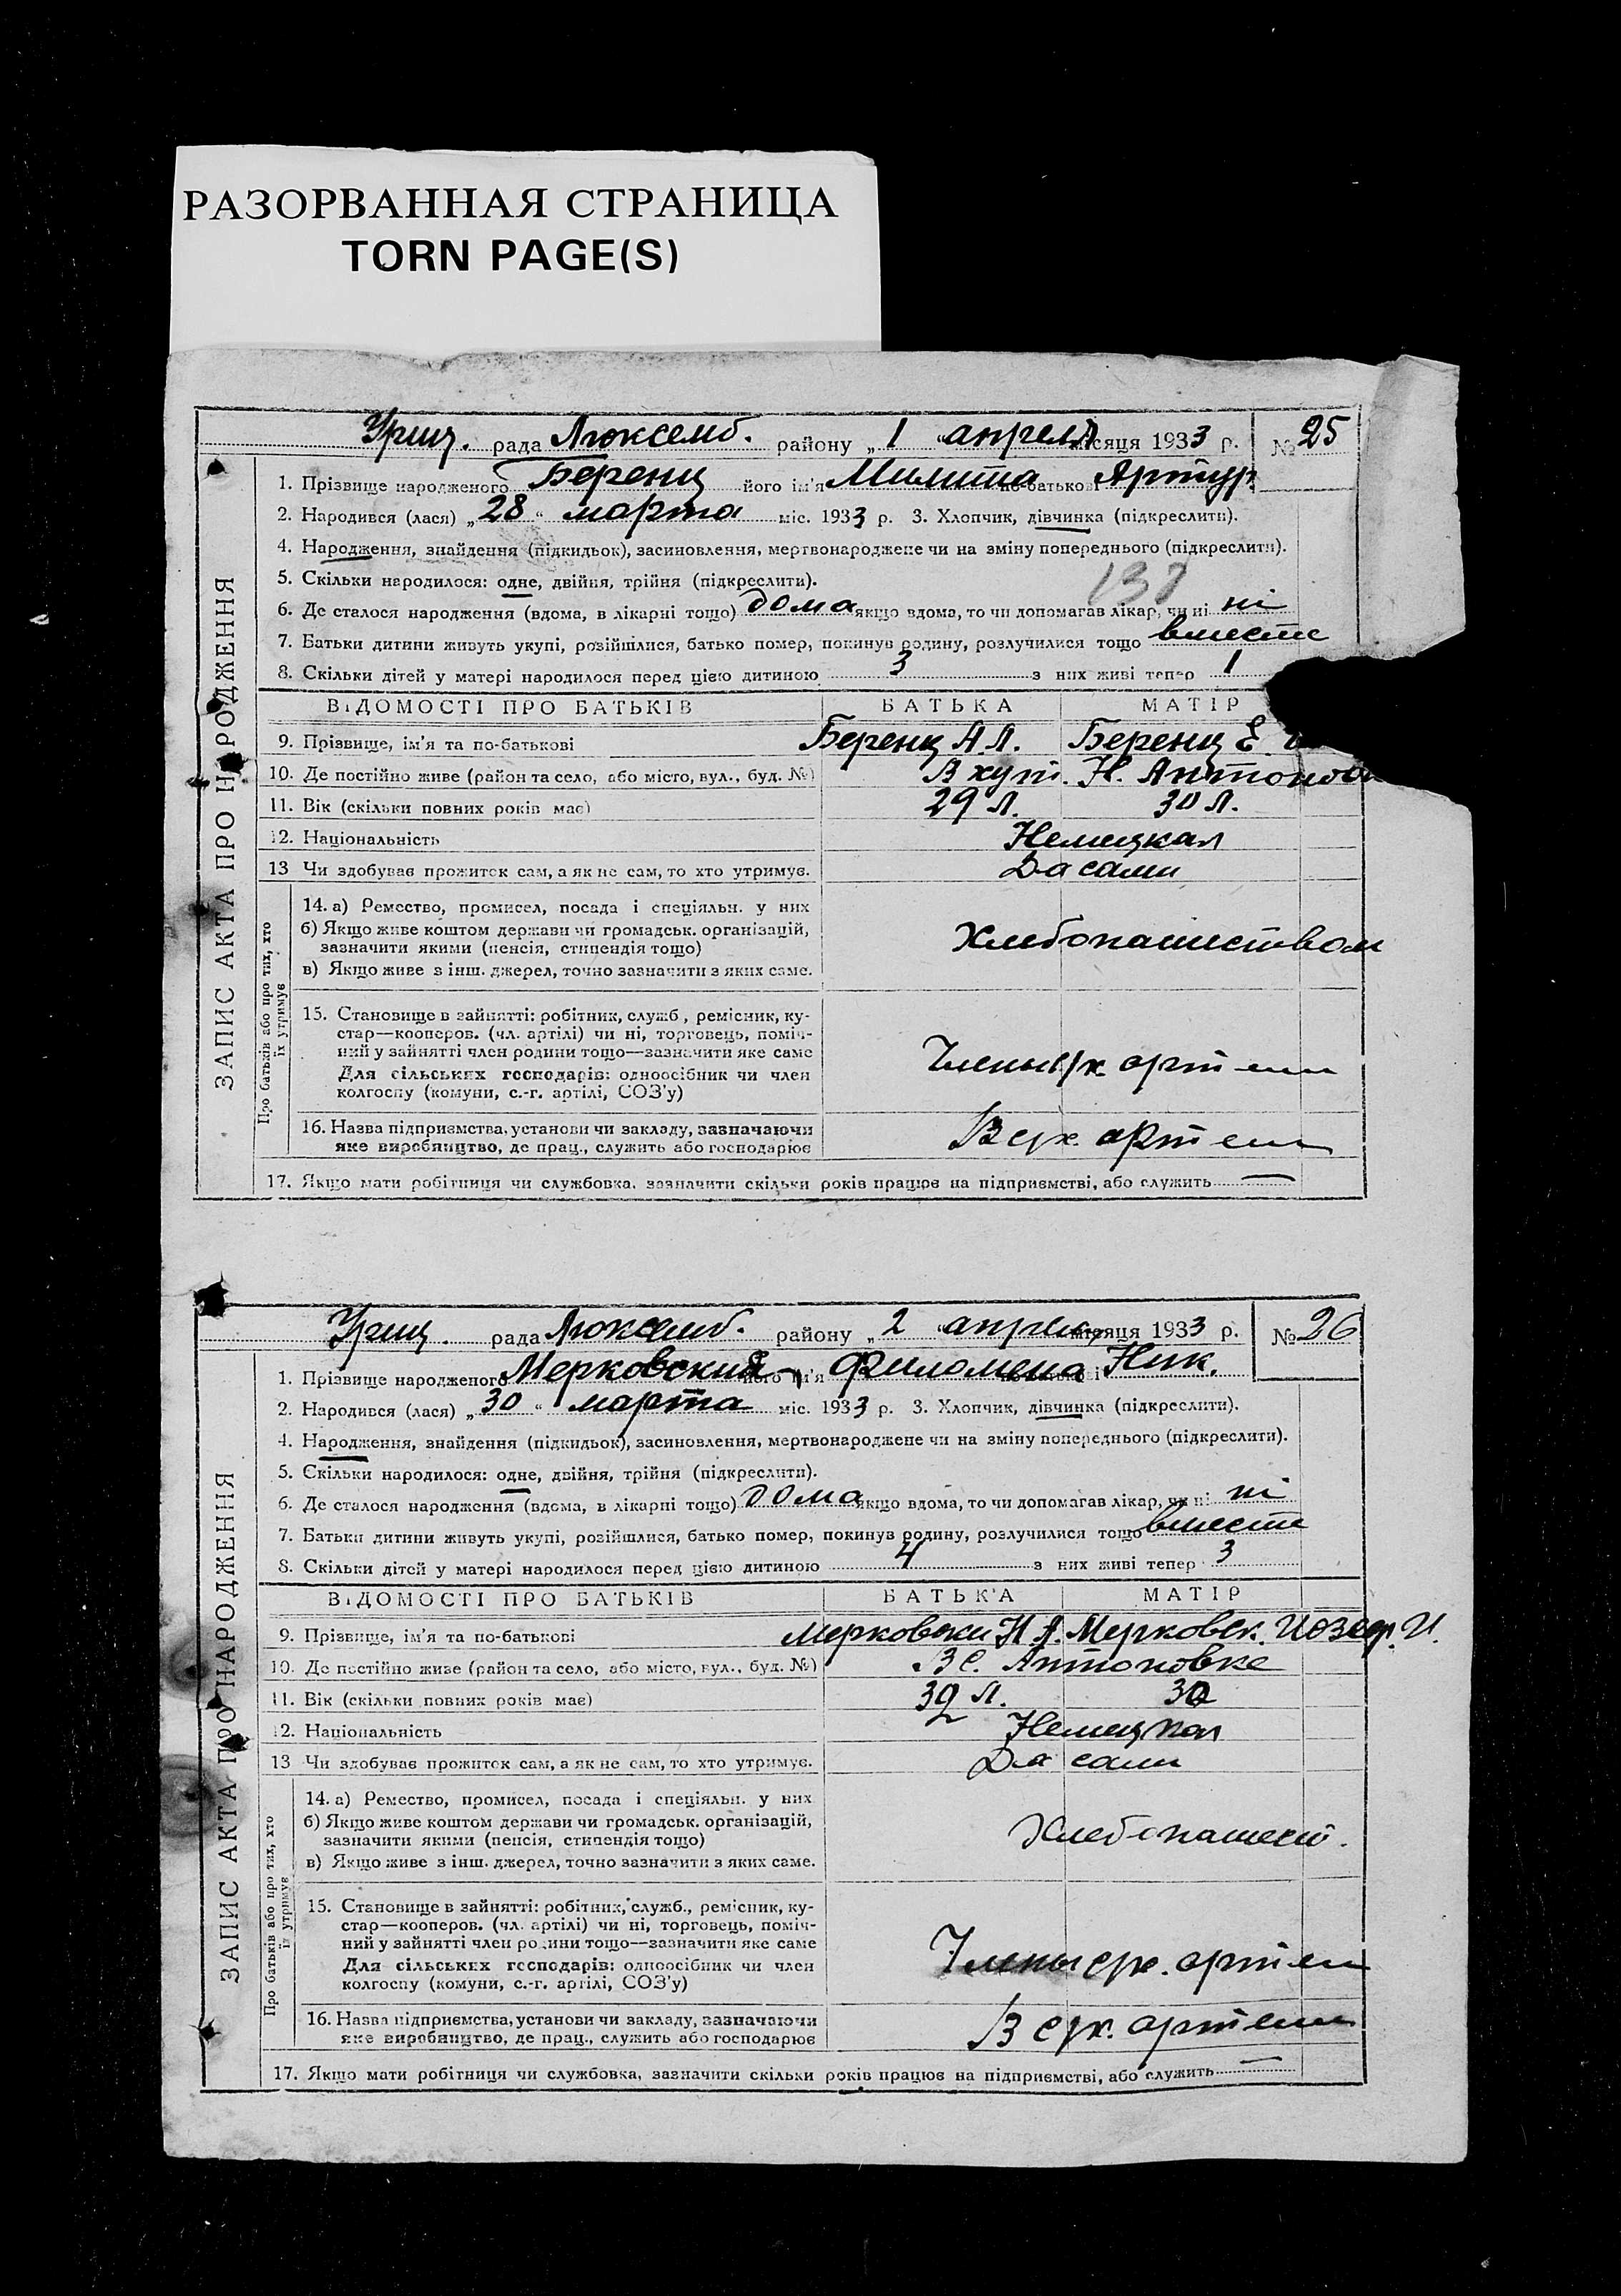 РАЗОРВАННАЯ СТРАНИЦА
TORN PAGE(S)
Уриц. рада Люксемб. району „ 1 “ апреля місяця 1933 р. № 25
ЗАПИС АКТА ПРО НАРОДЖЕННЯ
1. Прізвище народженого Беренц його ім'я Милита по-батькові Артур.
2. Народився (лася) „ 28 “ марта міс. 1933 р. 3. Хлопчик, дівчинка (підкреслити).
4. Народження, знайдення (підкидьок), засиновлення, мертвонароджене чи на зміну попереднього (підкреслити).
5. Скільки народилося: одне, двійня, трійня (підкреслити).
137
6. Де сталося народження (вдома, в лікарні тощо) дома якщо вдома, то чи допомагав лікар, чи ні ні
7. Батьки дитини живуть укупі, розійшлися, батько помер, покинув родину, розлучилися тощо вместе
8. Скільки дітей у матері народилося перед цією дитиною 3 з них живі тепер 1
ВІДОМОСТІ ПРО БАТЬКІВ БАТЬКА МАТІР
9. Прізвище, ім'я та по-батькові Беренц А.Л. Беренц Е.
10. Де постійно живе (район та село, або місто, вул., буд. №) В хут. Н. Антонов
11. Вік (скільки повних років має) 29 л. 30 л.
12. Національність Немецкая
13 Чи здобуває прожиток сам, а як не сам, то хто утримує. Да сами
Про батьків або про тих, хто
їх утримує
14. а) Ремество, промисел, посада і спеціяльн. у них
б) Якщо живе коштом держави чи громадськ. організацій,
зазначити якими (пенсія, стипендія тощо)
Хлебопашеством
в) Якщо живе з інш. джерел, точно зазначити з яких саме.
15. Становище в зайнятті: робітник, служб., ремісник, ку-
стар—кооперов. (чл. артілі) чи ні, торговець, поміч-
ний у зайнятті член родини тощо—зазначити яке саме
Члены с/х. артели
Для сільських господарів: одноосібник чи член
колгоспу (комуни, с.-г. артілі, СОЗ'у)
16. Назва підприємства, установи чи закладу, зазначаючи
яке виробництво, де прац., служить або господарює В с/х. артели
17. Якщо мати робітниця чи службовка, зазначити скільки років працює на підприємстві, або служить —
Уриц. рада Люксемб. району „ 2 “ апреля місяця 1933 р. № 26
ЗАПИС АКТА ПРО НАРОДЖЕННЯ
1. Прізвище народженого Мерковский його ім'я Филомена Ник.
2. Народився (лася) „ 30 “ марта міс. 1933 р. 3. Хлопчик, дівчинка (підкреслити).
4. Народження, знайдення (підкидьок), засиновлення, мертвонароджене чи на зміну попереднього (підкреслити).
5. Скільки народилося: одне, двійня, трійня (підкреслити).
6. Де сталося народження (вдома, в лікарні тощо) дома якщо вдома, то чи допомагав лікар, чи ні ні
7. Батьки дитини живуть укупі, розійшлися, батько помер, покинув родину, розлучилися тощо вместе
8. Скільки дітей у матері народилося перед цією дитиною 4 з них живі тепер 3
ВІДОМОСТІ ПРО БАТЬКІВ БАТЬКА МАТІР
9. Прізвище, ім'я та по-батькові Мерковски Н А. Мерковск. Иозеф. И.
10. Де постійно живе (район та село, або місто, вул., буд. №) В с. Антоновке
11. Вік (скільки повних років має) 32 л. 30
12. Національність Немецкая
13 Чи здобуває прожиток сам, а як не сам, то хто утримує. Да сами
Про батьків або про тих, хто
їх утримує
14. а) Ремество, промисел, посада і спеціяльн. у них
б) Якщо живе коштом держави чи громадськ. організацій,
зазначити якими (пенсія, стипендія тощо)
Хлебопашест.
в) Якщо живе з інш. джерел, точно зазначити з яких саме.
15. Становище в зайнятті: робітник, служб., ремісник, ку-
стар—кооперов. (чл. артілі) чи ні, торговець, поміч-
ний у зайнятті член родини тощо—зазначити яке саме
Члены с/х. артели
Для сільських господарів: одноосібник чи член
колгоспу (комуни, с.-г. артілі, СОЗ'у)
16. Назва підприємства, установи чи закладу, зазначаючи
яке виробництво, де прац., служить або господарює В с/х. артели
17. Якщо мати робітниця чи службовка, зазначити скільки років працює на підприємстві, або служить —